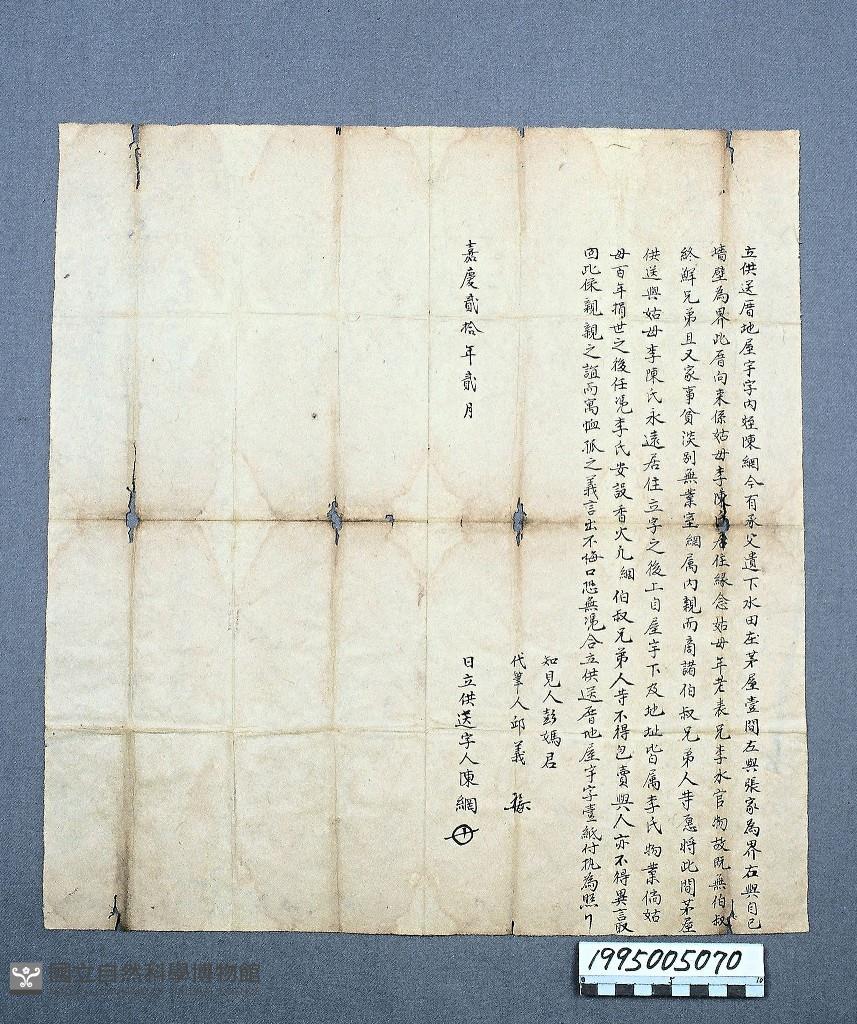 立供送厝地屋宇字內姪陳網今有承父遺下水田在茅屋壹間左與張家為界右與自己
墻壁為界此厝向來係姑母李陳氏居住緣念姑母年老表兄李水官物故既無伯叔
終鮮兄弟且又家事貧淡別無業室網属內親而商諸伯叔兄弟人等愿將此間茅屋
供送與姑母李陳氏永遠居住立字之後上自屋宇下及地址皆属李氏物業倘姑
母百年捐世之後任凭李氏安設香火凡網伯叔兄弟人等不得包賣與人亦不得異言取
回此係親親之誼而寓恤孤之義言出不悔口恐無凭合立供送厝地屋宇字壹紙付执為照
知見人彭媽君
代筆人邱義
嘉慶貳拾年貳月
日立供送字人陳網
國立自然科學博物館
1995005070